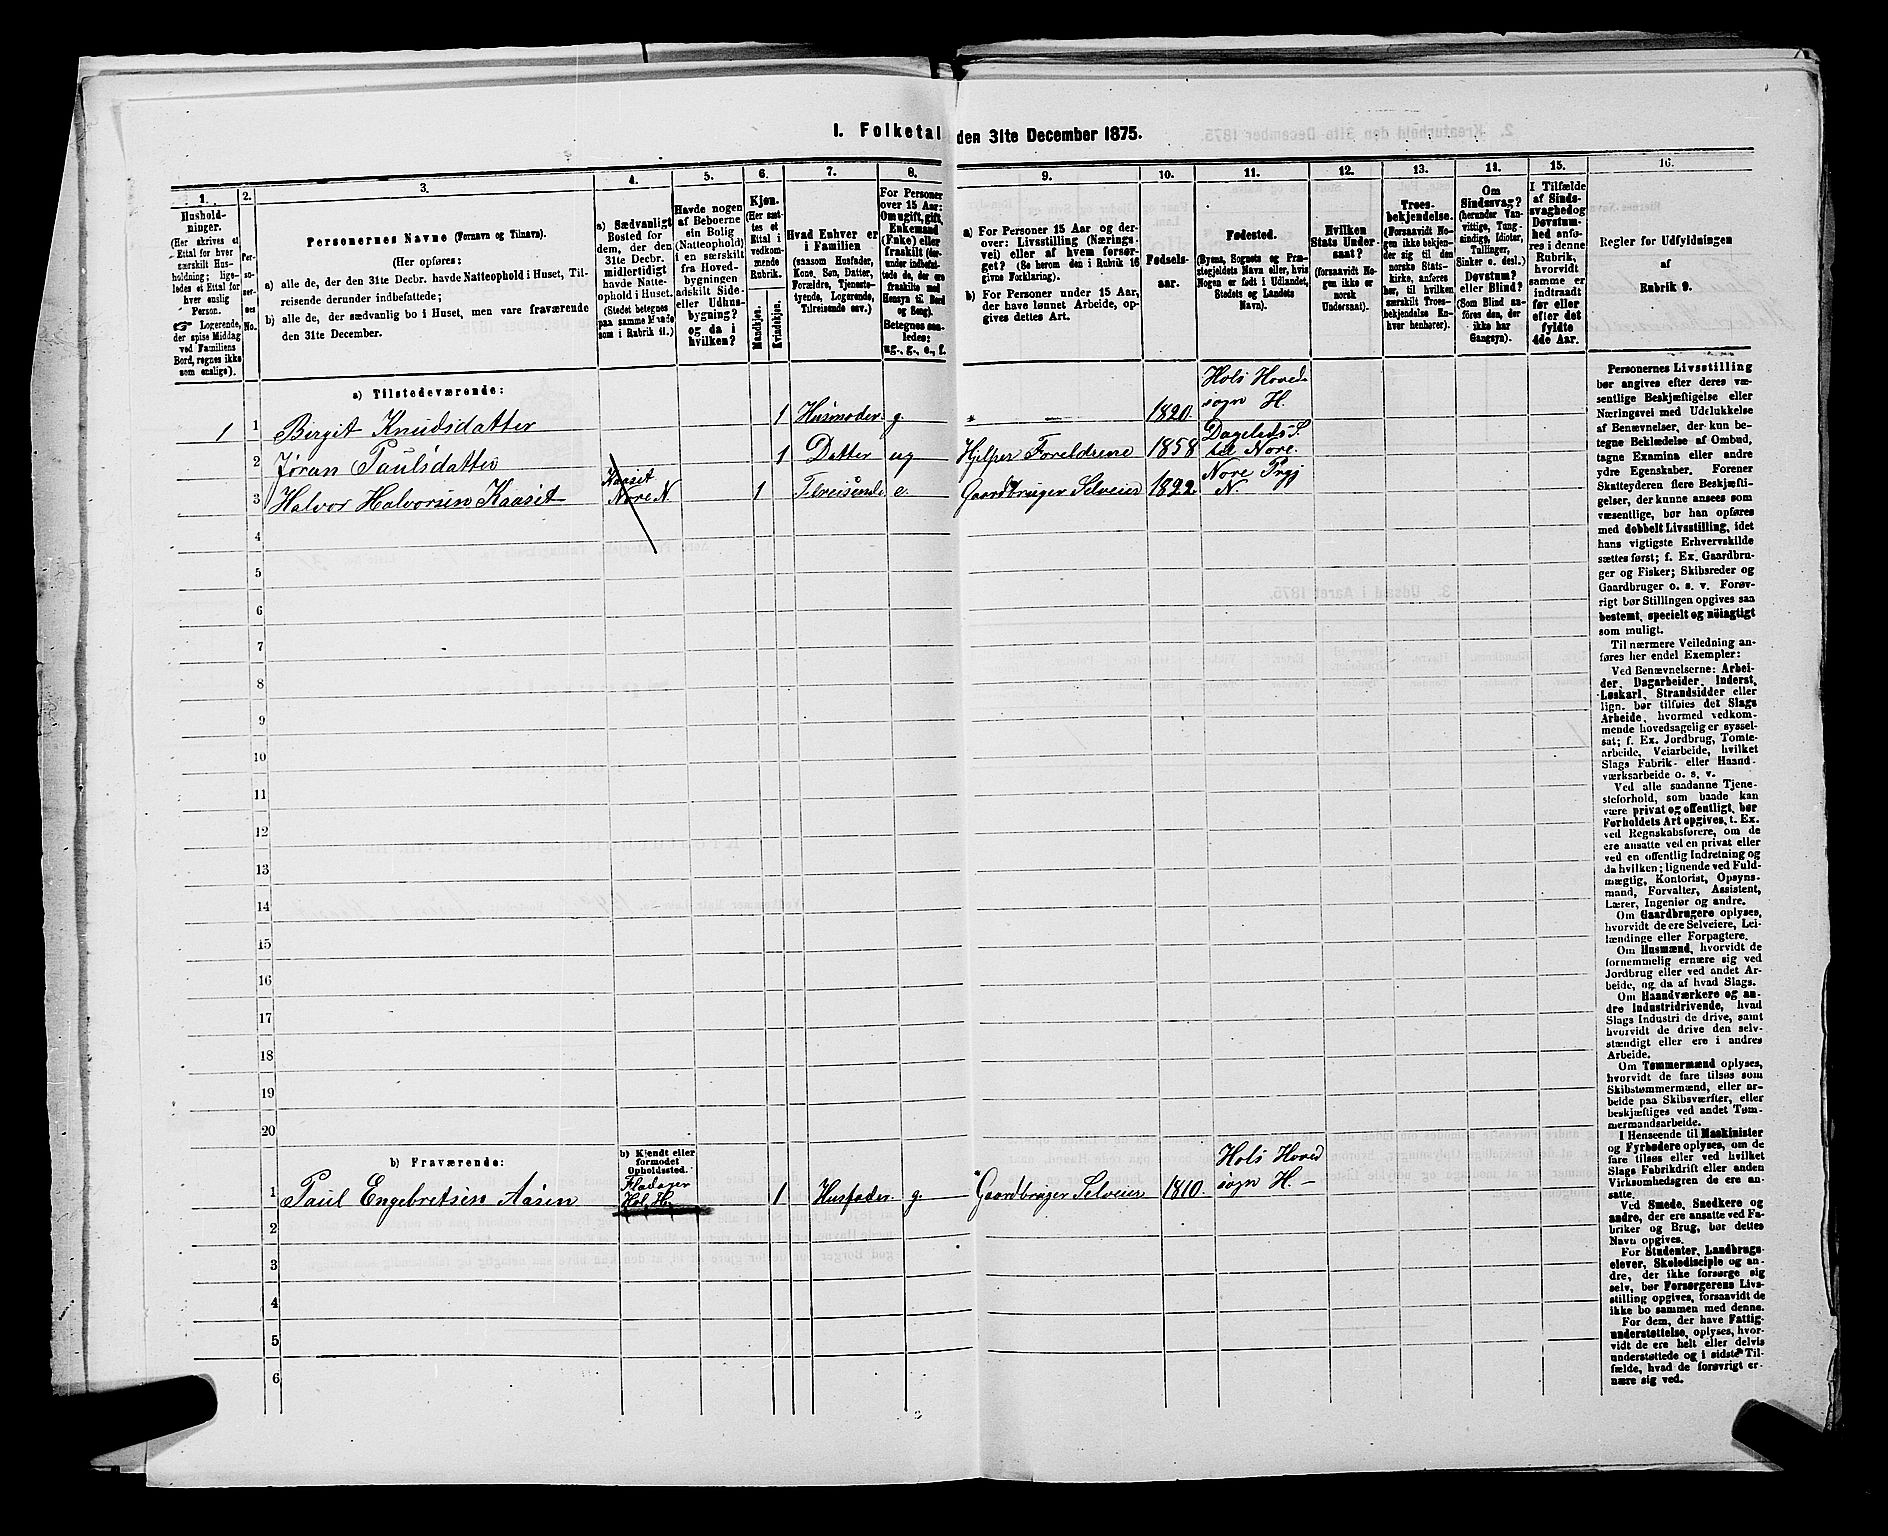 I. Folketal den 31te December 1875.
1.
Hushold-
ninger.
(Her skrives et
Ettal for hver
særskilt Hus-
holdning; lige-
ledes et Ettal for
hver enslig
Person.
☞ Logerende,
der spise Middag
ved Familiens
Bord, regnes ikke
som enslige).
2.
Per-
so-
ner-
nes
No.
3.
Personernes Navne (Fornavn og Tilnavn).
(Her opføres:
a) alle de, der den 31te Decbr. havde Natteophold i Huset, Til-
reisende derunder indbefattede;
b) alle de, der sædvanlig bo i Huset, men vare fraværende
den 31te December.
4.
a) Sædvanligt
Bosted for
dem, der den
31te Decbr.
midlertidigt
havde Natte-
ophold i Huset.
(Stedet betegnes
paa samme Maade
som i Rubrik 11.)
5.
Havde nogen
af Beboerne
sin Bolig
(Natteophold)
i en særskilt
fra Hoved-
bygningen
adskilt Side-
eller Udhus-
bygning?
og da i
hvilken?
6.
Kjøn.
(Her sæt-
tes et
Ettal i
vedkom-
mende
Rubrik.
Mandkjøn.
Kvindekjøn.
7.
Hvad Enhver er
i Familien
(saasom Husfader,
Kone, Søn, Datter,
Forældre, Tjeneste-
tyende, Logerende,
Tilreisende osv.)
8.
For Personer
over 15 Aar:
Om ugift, gift,
Enkemand
(Enke) eller
fraskilt (der-
under indbefat-
tede de, der ere
fraskilte med
Hensyn til Bord
og Seng).
Betegnes saa-
ledes:
ug., g., e., f.
9.
a) For Personer 15 Aar og der-
over: Livsstilling (Nærings-
vei) eller af hvem forsør-
get? (Se herom den i Rubrik 16
givne Forklaring).
b) For Personer under 15 Aar,
der have lønnet Arbeide, op-
gives dettes Art.
10.
Fødsels-
aar.
11.
Fødested.
(Byens, Sognets og Præ-
stegjeldets Navn eller, hvis
Nogen er født i Udlandet,
Stedets og Landets
Navn).
12.
Hvilken
Stats Under-
saat?
(forsaavidt No-
gen ikke er
norsk
Undersaat).
13.
Troes-
bekjendelse.
(Forsaavidt No-
gen ikke bekjen-
der sig til den
norske Stats-
kirke, anføres
her, til hvilken
særskilt Troes-
bekjendelse En-
hver henhører).
14.
Om
Sindssvag?
(herunder Van-
vittige, Tung-
sindige, Idioter,
Tullinger,
Sinker o. desl.).
Døvstum?
eller Blind?
(Som Blind an-
føres den, der
ikke har
Gangsyn).
15.
I Tilfælde
af Sinds-
svaghed og
Døvstum-
hed anfø-
res i denne
Rubrik,
hvorvidt
samme er
indtraadt
før eller
efter det
fyldte
4de Aar.
16.
Regler for Udfyldningen
af
Rubrik 9.
a) Tilstedeværende:
1 1 Birgit Knudsdatter 1 Husmoder g " — 1820. Hols Hoved-
sogn H.
2 Jøran Paulsdatter 1 Datter ug Hjelper Foreldrene 1858 Dagelids S.
til Nore.
3 Halvor Halvorsen Kaasit Kaasit
Nore N 1 Tilreisende e. Gaardbruger Selveier 1822. Nore Prgj
N.
4
5
6
7
8
9
10
11
12
13
14
15
16
17
18
19
20
b) Fraværende:
b) Kjendt eller
formodet
Opholdssted.
1 Paul Engebretsen Aasen 1 Husfader g Gaardbruger Selveier 1810. Hols Hoved
sogn H. —
2
3
4
5
6
Personernes Livsstilling
bør angives efter deres væ-
sentlige Beskjæftigelse eller
Næringsvei med Udelukkelse
af Benævnelser, der kun be-
tegne Beklædelse af Ombud,
tagne Examina eller andre
ydre Egenskaber. Forener
Skatteyderen flere Beskjæfti-
gelser, der kunne ansees som
væsentlige, bør han opføres
med dobbelt Livsstilling, idet
hans vigtigste Erhvervskilde
sættes først; f. Ex. Gaardbru-
ger og Fisker; Skibsreder og
Gaardbruger o. s. v. Forøv-
rigt bør Stillingen opgives saa
bestemt, specielt og nöiagtigt
som muligt.
Til nærmere Veiledning an-
føres her endel Exempler:
Ved Benævnelserne: Arbei-
der, Dagarbeider, Inderst,
Løskarl, Strandsidder eller
lign. bør tilføies det Slags
Arbeide, hvormed vedkom-
mende hovedsagelig er syssel-
sat; f. Ex. Jordbrug, Tomte-
arbeide, Veiarbeide, hvilket
Slags Fabrik- eller Haand-
værksarbeide o. s. v.
Ved alle saadanne Tjene-
steforhold, som baade kan
være privat og offentligt, bør
Forholdets Art opgives, t. Ex.
ved Regnskabsførere, om de
ere ansatte ved en privat eller
ved en offentlig Indretning og
da hvilken; lignende ved Fuld-
mægtig, Kontorist, Opsyns-
mand, Forvalter, Assistent,
Lærer, Ingeniør og andre.
Om Gaardbrugere oplyses,
hvorvidt de ere Selveiere, Lei-
lændinge eller Forpagtere.
Om Husmænd, hvorvidt de
fornemmelig ernære sig ved
Jordbrug eller ved andet Ar-
beide, og da af hvad Slags.
Om Haandværkere og an-
dre Industridrivende, hvad
Slags Industri de drive, samt
hvorvidt de drive den selv-
stændigt eller ere i andres
Arbeide.
Om Tømmermænd oplyses,
hvorvidt de fare tilsøs som
Skibstømmermænd, eller ar-
beide paa Skibsværfter, eller
beskjæftiges ved andet Tøm-
mermandsarbeide.
I Henseende til Maskinister
og Fyrbødere oplyses, om de
fare tilsøs eller ved hvilket
Slags Fabrikdrift eller anden
Virksomhedsgren de ere an-
satte.
Ved Smede, Snedkere og
andre, der ere ansatte ved Fa-
briker og Brug, bør dettes
Navn opgives.
For Studenter, Landbrugs-
elever, Skoledisciple og an-
dre, der ikke forsørge sig
selv, bør Forsørgerens Livs-
stilling opgives, forsaavidt de
ikke bo sammen med denne.
For dem, der have Fattig-
understøttelse, oplyses, hvor-
vidt de ere helt eller delvis
understøttede og i sidste Til-
fælde, hvad de forøvrigt er-
nære sig ved.